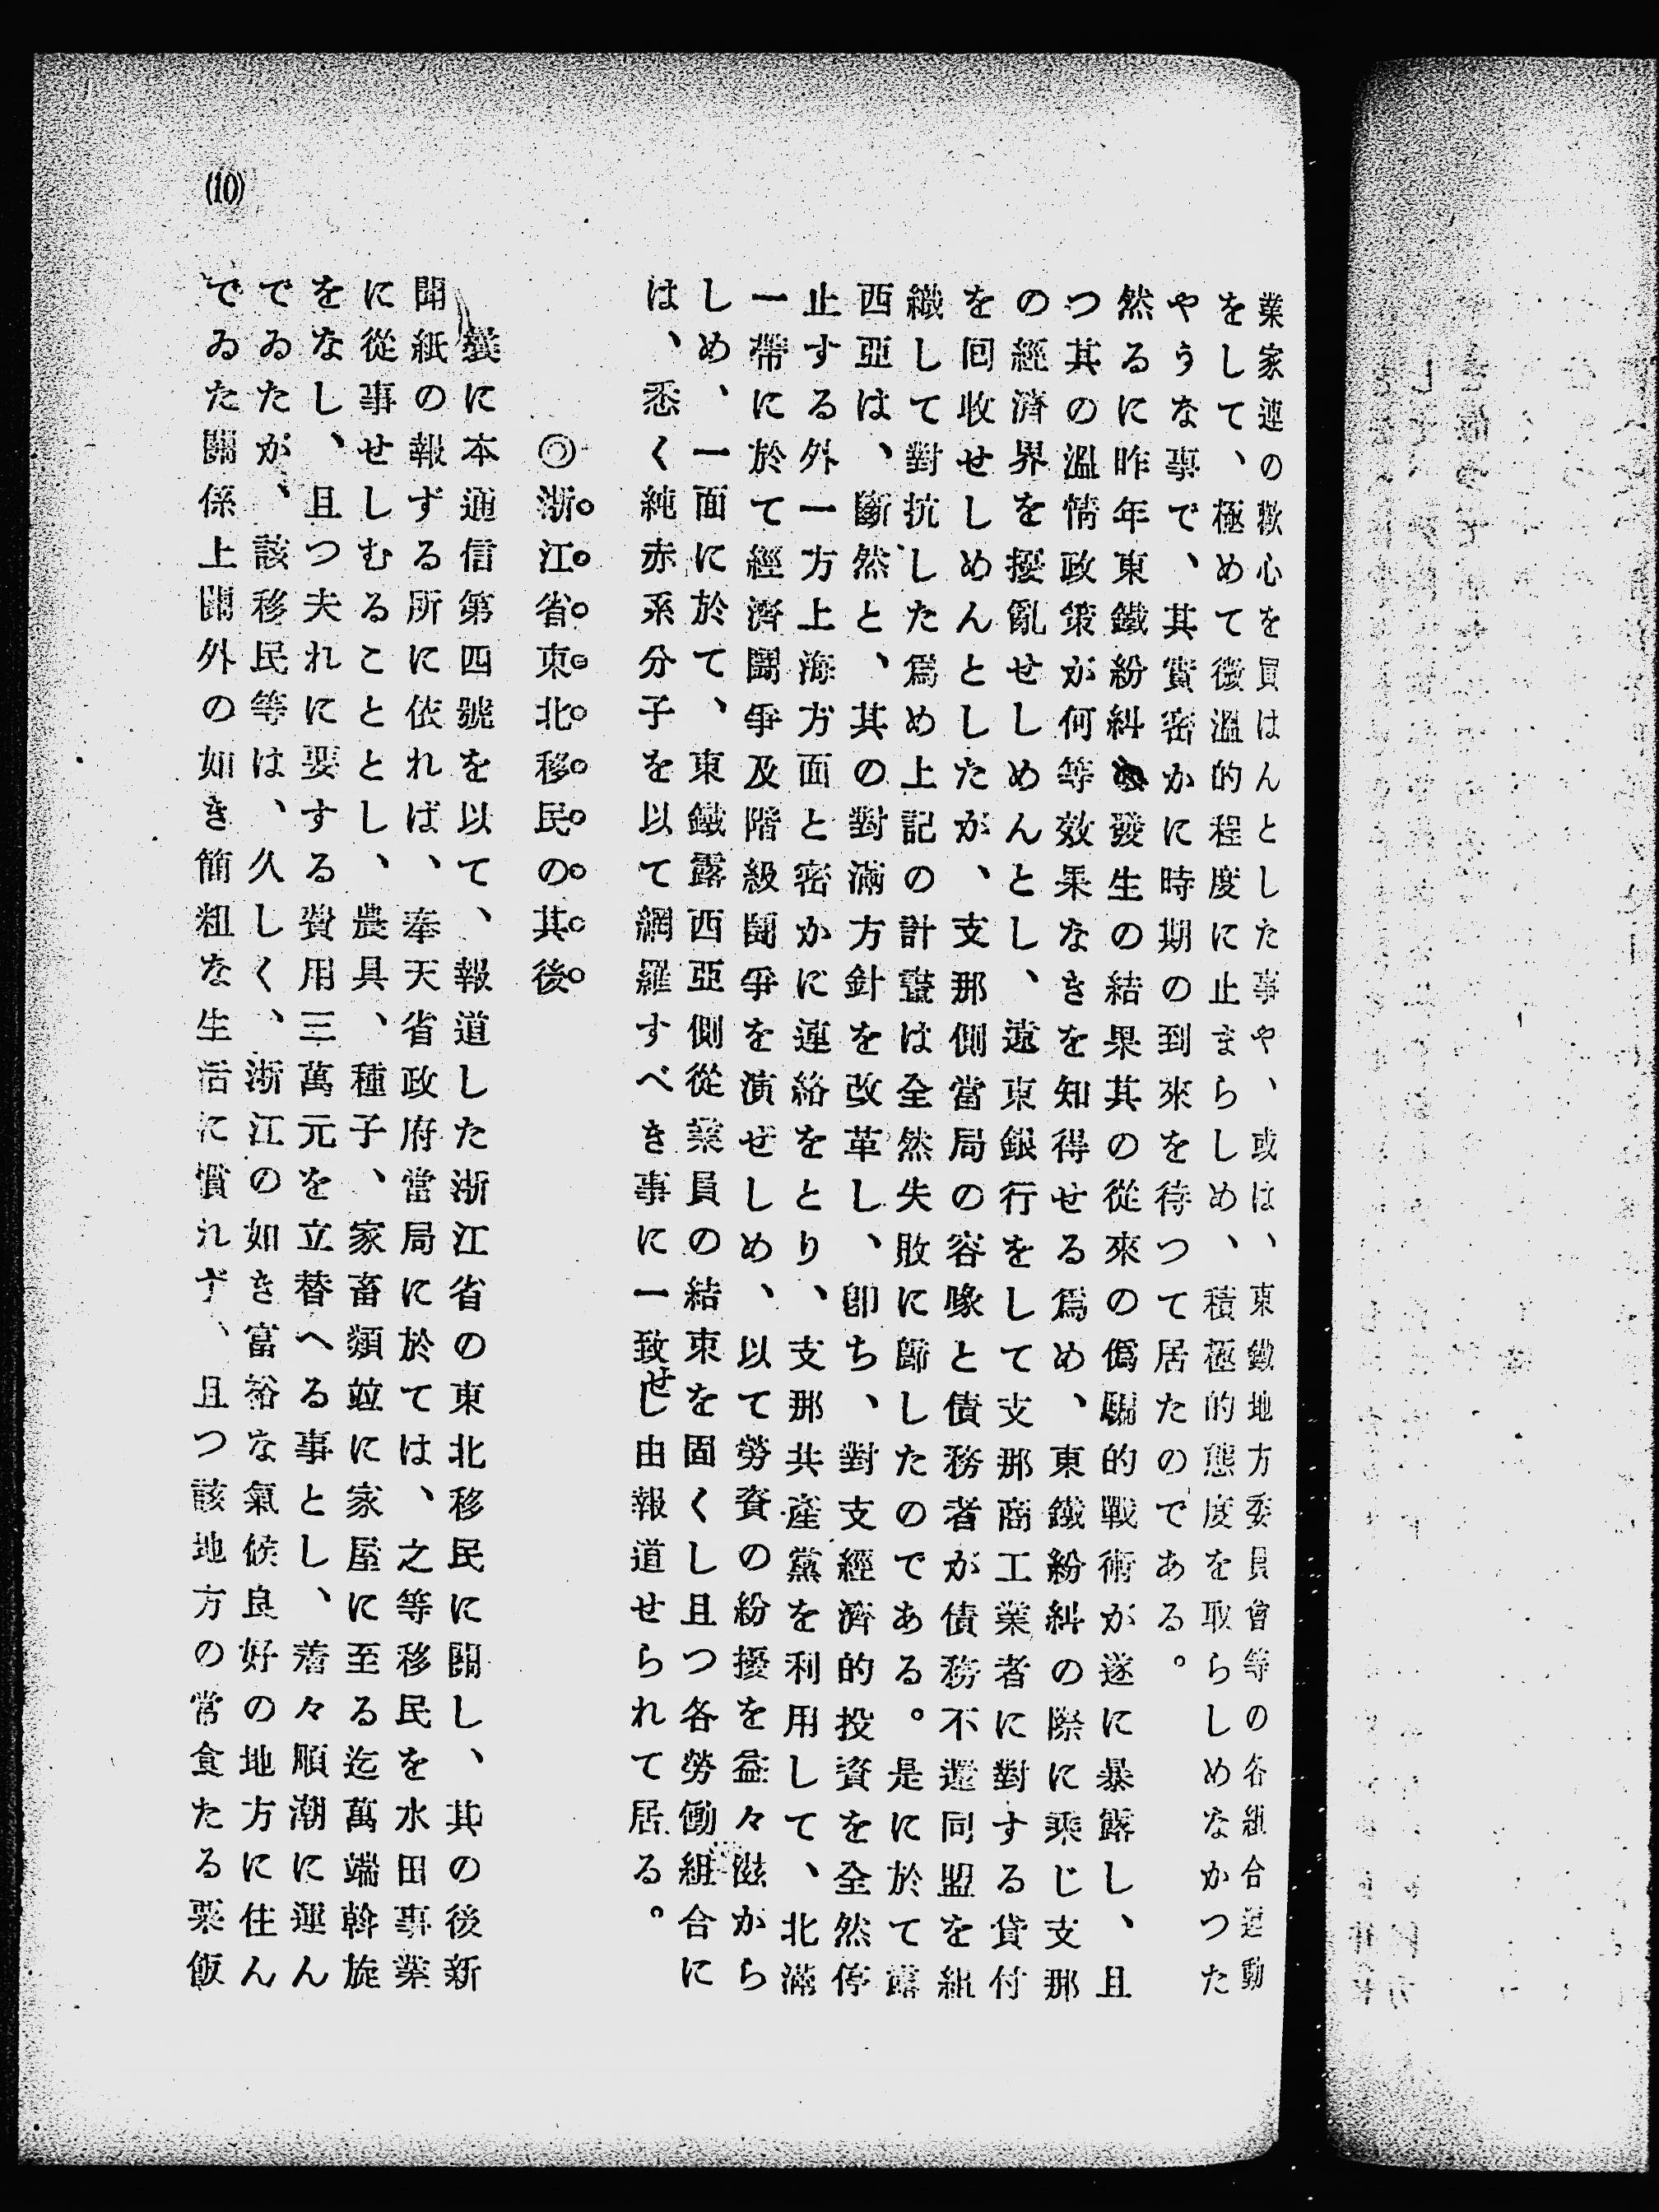 業家連の歡心を買はんとした事や、或は、東鐵地方委員會等の各組合運動
をして、極めて微溫的程度に止まらしめ、積極的態度を取らしめなかつた
やうな事で、其實密かに時期の到來を待つて居たのである。
然るに昨年東鐵紛糾發生の結果其の從來の僞騙的戰術が遂に暴露し、且
つ其の溫情政策が何等效果なきを知得せる爲め、東鐵紛糾の際に乘じ支那
の經濟界を擾亂せしめんとし、遠東銀行をして支那商工業者に對する貸付
を回收せしめんとしたが、支那側當局の容喙と債務者が債務不還同盟を組
織して對抗した爲め上記の計畫は全然失敗に歸したのである。是に於て露
西亞は、斷然と、其の對滿方針を改革し、卽ち、對支經濟的投資を全然停
止する外一方上海方面と密かに連絡をとり、支那共產黨を利用して、北滿
一帶に於て經濟鬪爭及階級鬪爭を演ぜしめ、以て勞資の紛擾を益々滋がら
しめ、一面に於て、東鐵露西亞側從業員の結束を固くし且つ各勞働組合に
は、悉く純赤系分子を以て網羅すべき事に一致せし由報道せられて居る。
◎浙江省東北移民の其後
曩に本通信第四號を以て、報道した浙江省の東北移民に關し、其の後新
聞紙の報ずる所に依れば、奉天省政府當局に於ては、之等移民を水田事業
に從事せしむることとし、農具、種子、家畜類竝に家屋に至る迄萬端斡旋
をなし、且つ夫れに要する費用三萬元を立替へる事とし、着々順潮に運ん
でゐたが、該移民等は、久しく、浙江の如き富裕な氣候良好の地方に住ん
でゐた關係上關外の如き簡粗な生活に慣れず、且つ該地方の常食たる粟飯
(10)